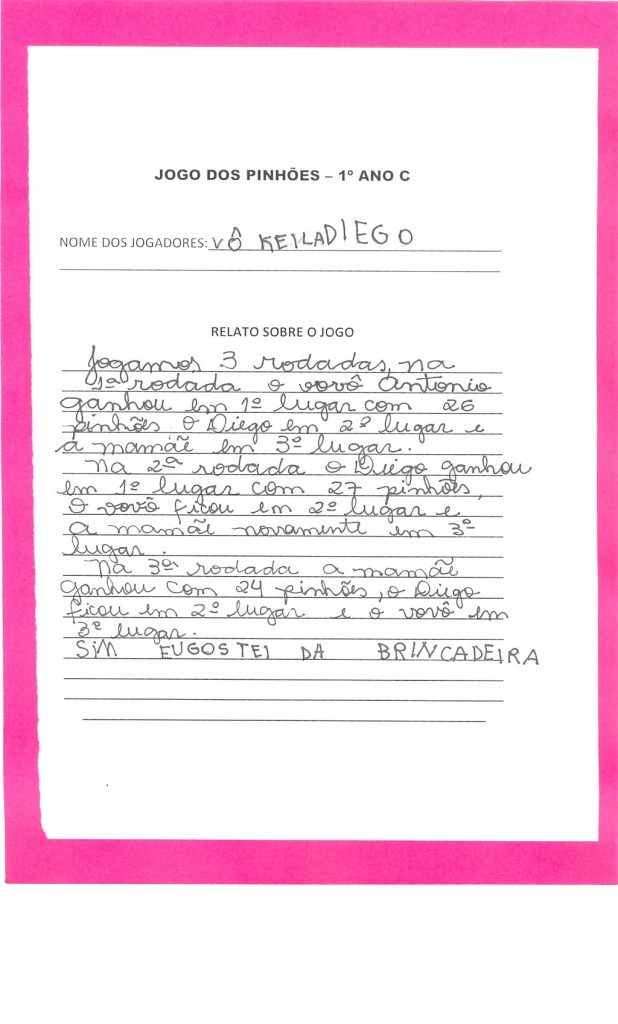 JOGO DOS PINHÕES – 1º ANO C
NOME DOS JOGADORES: VÔ KEILA DIEGO
RELATO SOBRE O JOGO
Jogamos 3 rodadas, na
1ª rodada o vovô Antonio
ganhou em 1º lugar com 26
pinhões. O Diego em 2º lugar e
a mamãe em 3º lugar.
Na 2ª rodada o Diego ganhou
em 1º lugar com 27 pinhões,
O vovô ficou em 2º lugar e
a mamãe novamente em 3º
lugar.
Na 3ª rodada a mamãe
ganhou com 24 pinhões, o Diego
ficou em 2º lugar e o vovô em
3º lugar.
SIM EUGOSTEI DA BRINCADEIRA